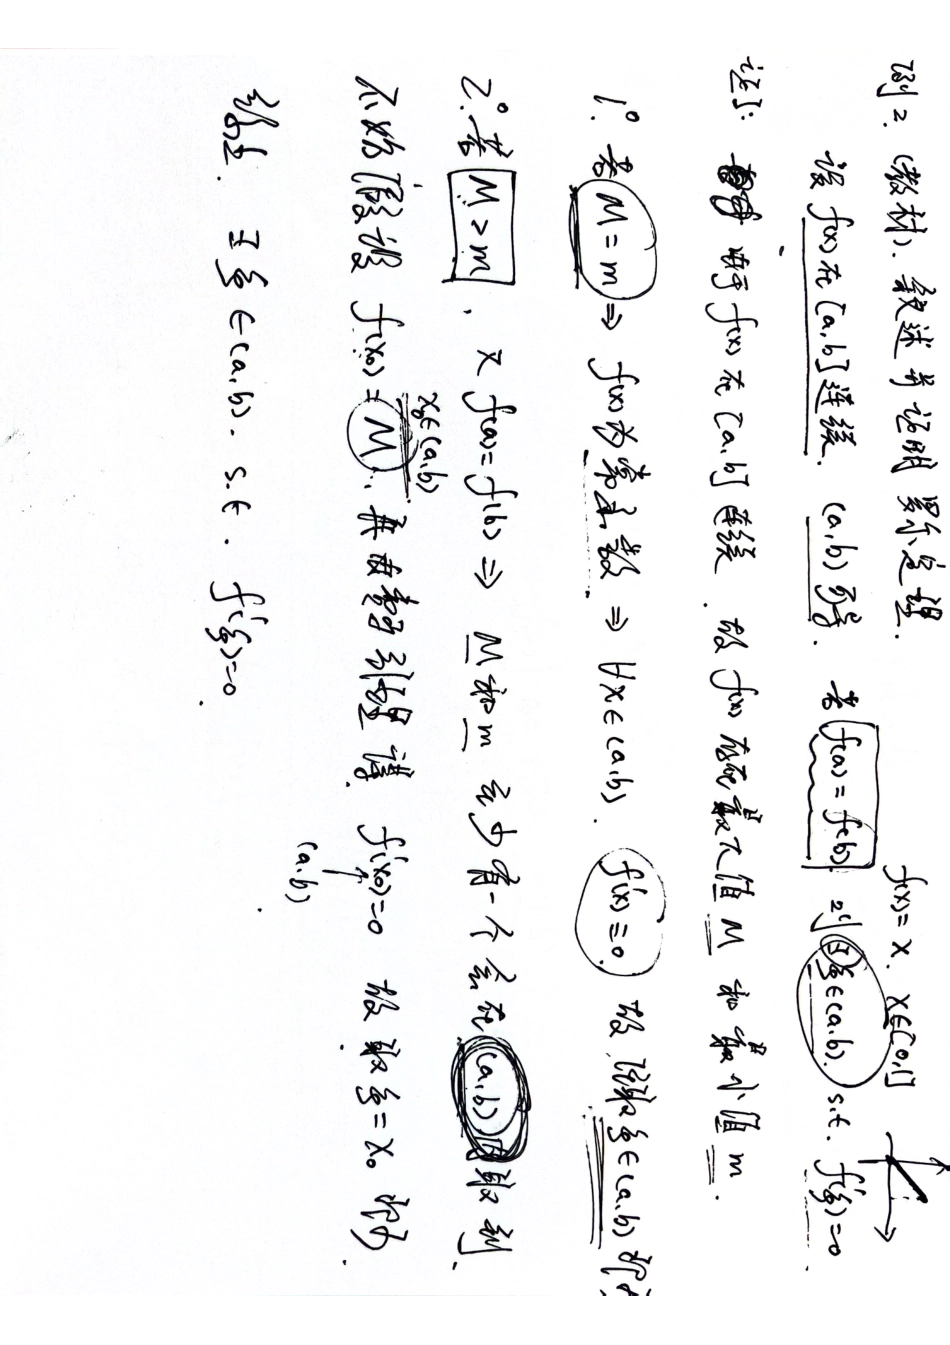 例2. (教材). 叙述并证明罗尔定理.
f(x)=x. x∈[0,1]
设 f(x) 在 [a,b] 连续. (a,b) 可导. 若 f(a)=f(b) 则 ∃ξ∈(a,b). s.t. f'(ξ)=0
证明: 由于 f(x) 在 [a,b] 连续. 故 f(x) 存在最大值 M 和最小值 m.
1°. 若 M=m ⇒ f(x) 为常函数 ⇒ ∀x∈(a,b). f'(x)≡0. 故 取 ξ∈(a,b) 即
2°. 若 M>m. 又 f(a)=f(b) ⇒ M 和 m 至少有一个会在 (a,b) 内取到.
x₀∈(a,b)
不妨假设 f(x₀)=M. 并由费马引理 f'(x₀)=0 故取 ξ=x₀ 即可.
(a,b)
综上. ∃ξ∈(a,b). s.t. f'(ξ)=0.